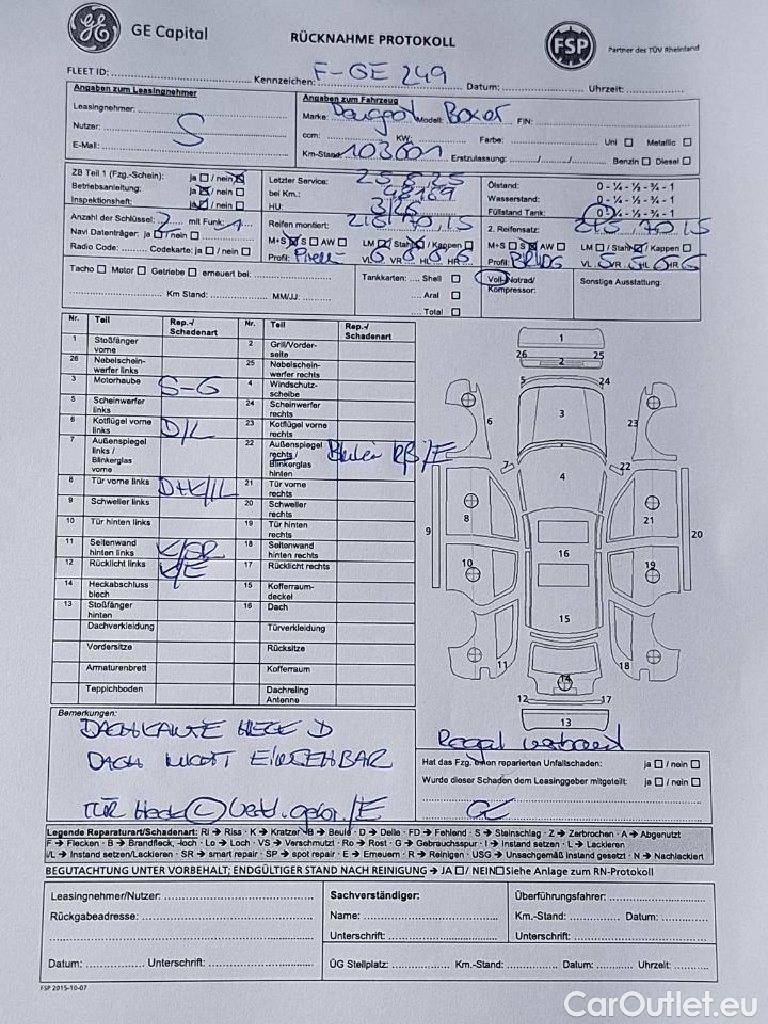 GE
GE Capital
RÜCKNAHME PROTOKOLL
FSP
Partner des TÜV Rheinland
FLEET ID: Kennzeichen: F-GE 249 Datum: Uhrzeit:
Angaben zum Leasingnehmer
Leasingnehmer:
Nutzer: S
E-Mail:
Angaben zum Fahrzeug
Marke: Peugeot Modell: Boxer FIN:
ccm: KW: Farbe: Uni Metallic
Km-Stand: 103601 Erstzulassung: / / Benzin Diesel
ZB Teil 1 (Fzg.-Schein): ja / nein
Betriebsanleitung: ja / nein
Inspektionsheft: ja / nein
Letzter Service:
bei Km.:
HU:
Ölstand: 0 - ¼ - ½ - ¾ - 1
Wasserstand: 0 - ¼ - ½ - ¾ - 1
Füllstand Tank: 0 - ¼ - ½ - ¾ - 1
Anzahl der Schlüssel: 2 mit Funk: 1
Navi Datenträger: ja / nein
Radio Code: Codekarte: ja / nein
Reifen montiert: 215 70 15
M+S S AW LM / Stahl / Kappen
Profil: Pirelli VL 6 VR 6 HL 6 HR 6
2. Reifensatz: 215 70 15
M+S S AW LM / Stahl / Kappen
Profil: VL 5 VR 5 HL 6 HR 6
Tacho Motor Getriebe erneuert bei:
Km Stand: MM/JJ:
Tankkarten: Shell
Aral
Total
Voll-/Notrad/
Kompressor:
Sonstige Ausstattung:
Nr. Teil Rep.-/ Schadenart Nr. Teil Rep.-/ Schadenart
1 Stoßfänger vorne 2 Grill/Vorderseite
26 Nebelscheinwerfer links 25 Nebelscheinwerfer rechts
3 Motorhaube S-G 4 Windschutzscheibe
5 Scheinwerfer links 24 Scheinwerfer rechts
6 Kotflügel vorne links D/L 23 Kotflügel vorne rechts
7 Außenspiegel links / Blinkerglas vorne 22 Außenspiegel rechts / Blinkerglas hinten
8 Tür vorne links D+K/L 21 Tür vorne rechts
9 Schweller links 20 Schweller rechts
10 Tür hinten links 19 Tür hinten rechts
11 Seitenwand hinten links K/SR 18 Seitenwand hinten rechts
12 Rücklicht links K/E 17 Rücklicht rechts
14 Heckabschluss blech 15 Kofferraumdeckel
13 Stoßfänger hinten 16 Dach
Dachverkleidung Türverkleidung
Vordersitze Rücksitze
Armaturenbrett Kofferraum
Teppichboden Dachreling Antenne
1
26 2 25
5 24
6 3 23
7 22
4
8 21
9 20
16
10 19
15
11 18
14
12 17
13
Bemerkungen:
DACHKANTE HECK D
DACH NICHT EINSEHBAR
Regal verbaut
Hat das Fzg. einen reparierten Unfallschaden: ja / nein
Wurde dieser Schaden dem Leasinggeber mitgeteilt: ja / nein
Legende Reparaturart/Schadenart: Ri → Riss · K → Kratzer · B → Beule · D → Delle · FD → Fehlend · S → Steinschlag · Z → Zerbrochen · A → Abgenutzt
F → Flecken · B → Brandfleck, -loch · Lo → Loch · VS → Verschmutzt · Ro → Rost · G → Gebrauchsspur · I → Instand setzen · L → Lackieren
I/L → Instand setzen/Lackieren · SR → smart repair · SP → spot repair · E → Erneuern · R → Reinigen · USG → Unsachgemäß instand gesetzt · N → Nachlackiert
BEGUTACHTUNG UNTER VORBEHALT; ENDGÜLTIGER STAND NACH REINIGUNG → JA / NEIN Siehe Anlage zum RN-Protokoll
Leasingnehmer/Nutzer:
Rückgabeadresse:
Datum: Unterschrift:
Sachverständiger:
Name:
Unterschrift:
Überführungsfahrer:
Km.-Stand: Datum:
Unterschrift:
ÜG Stellplatz: Km.-Stand: Datum: Uhrzeit:
FSP 2015-10-07
CarOutlet.eu